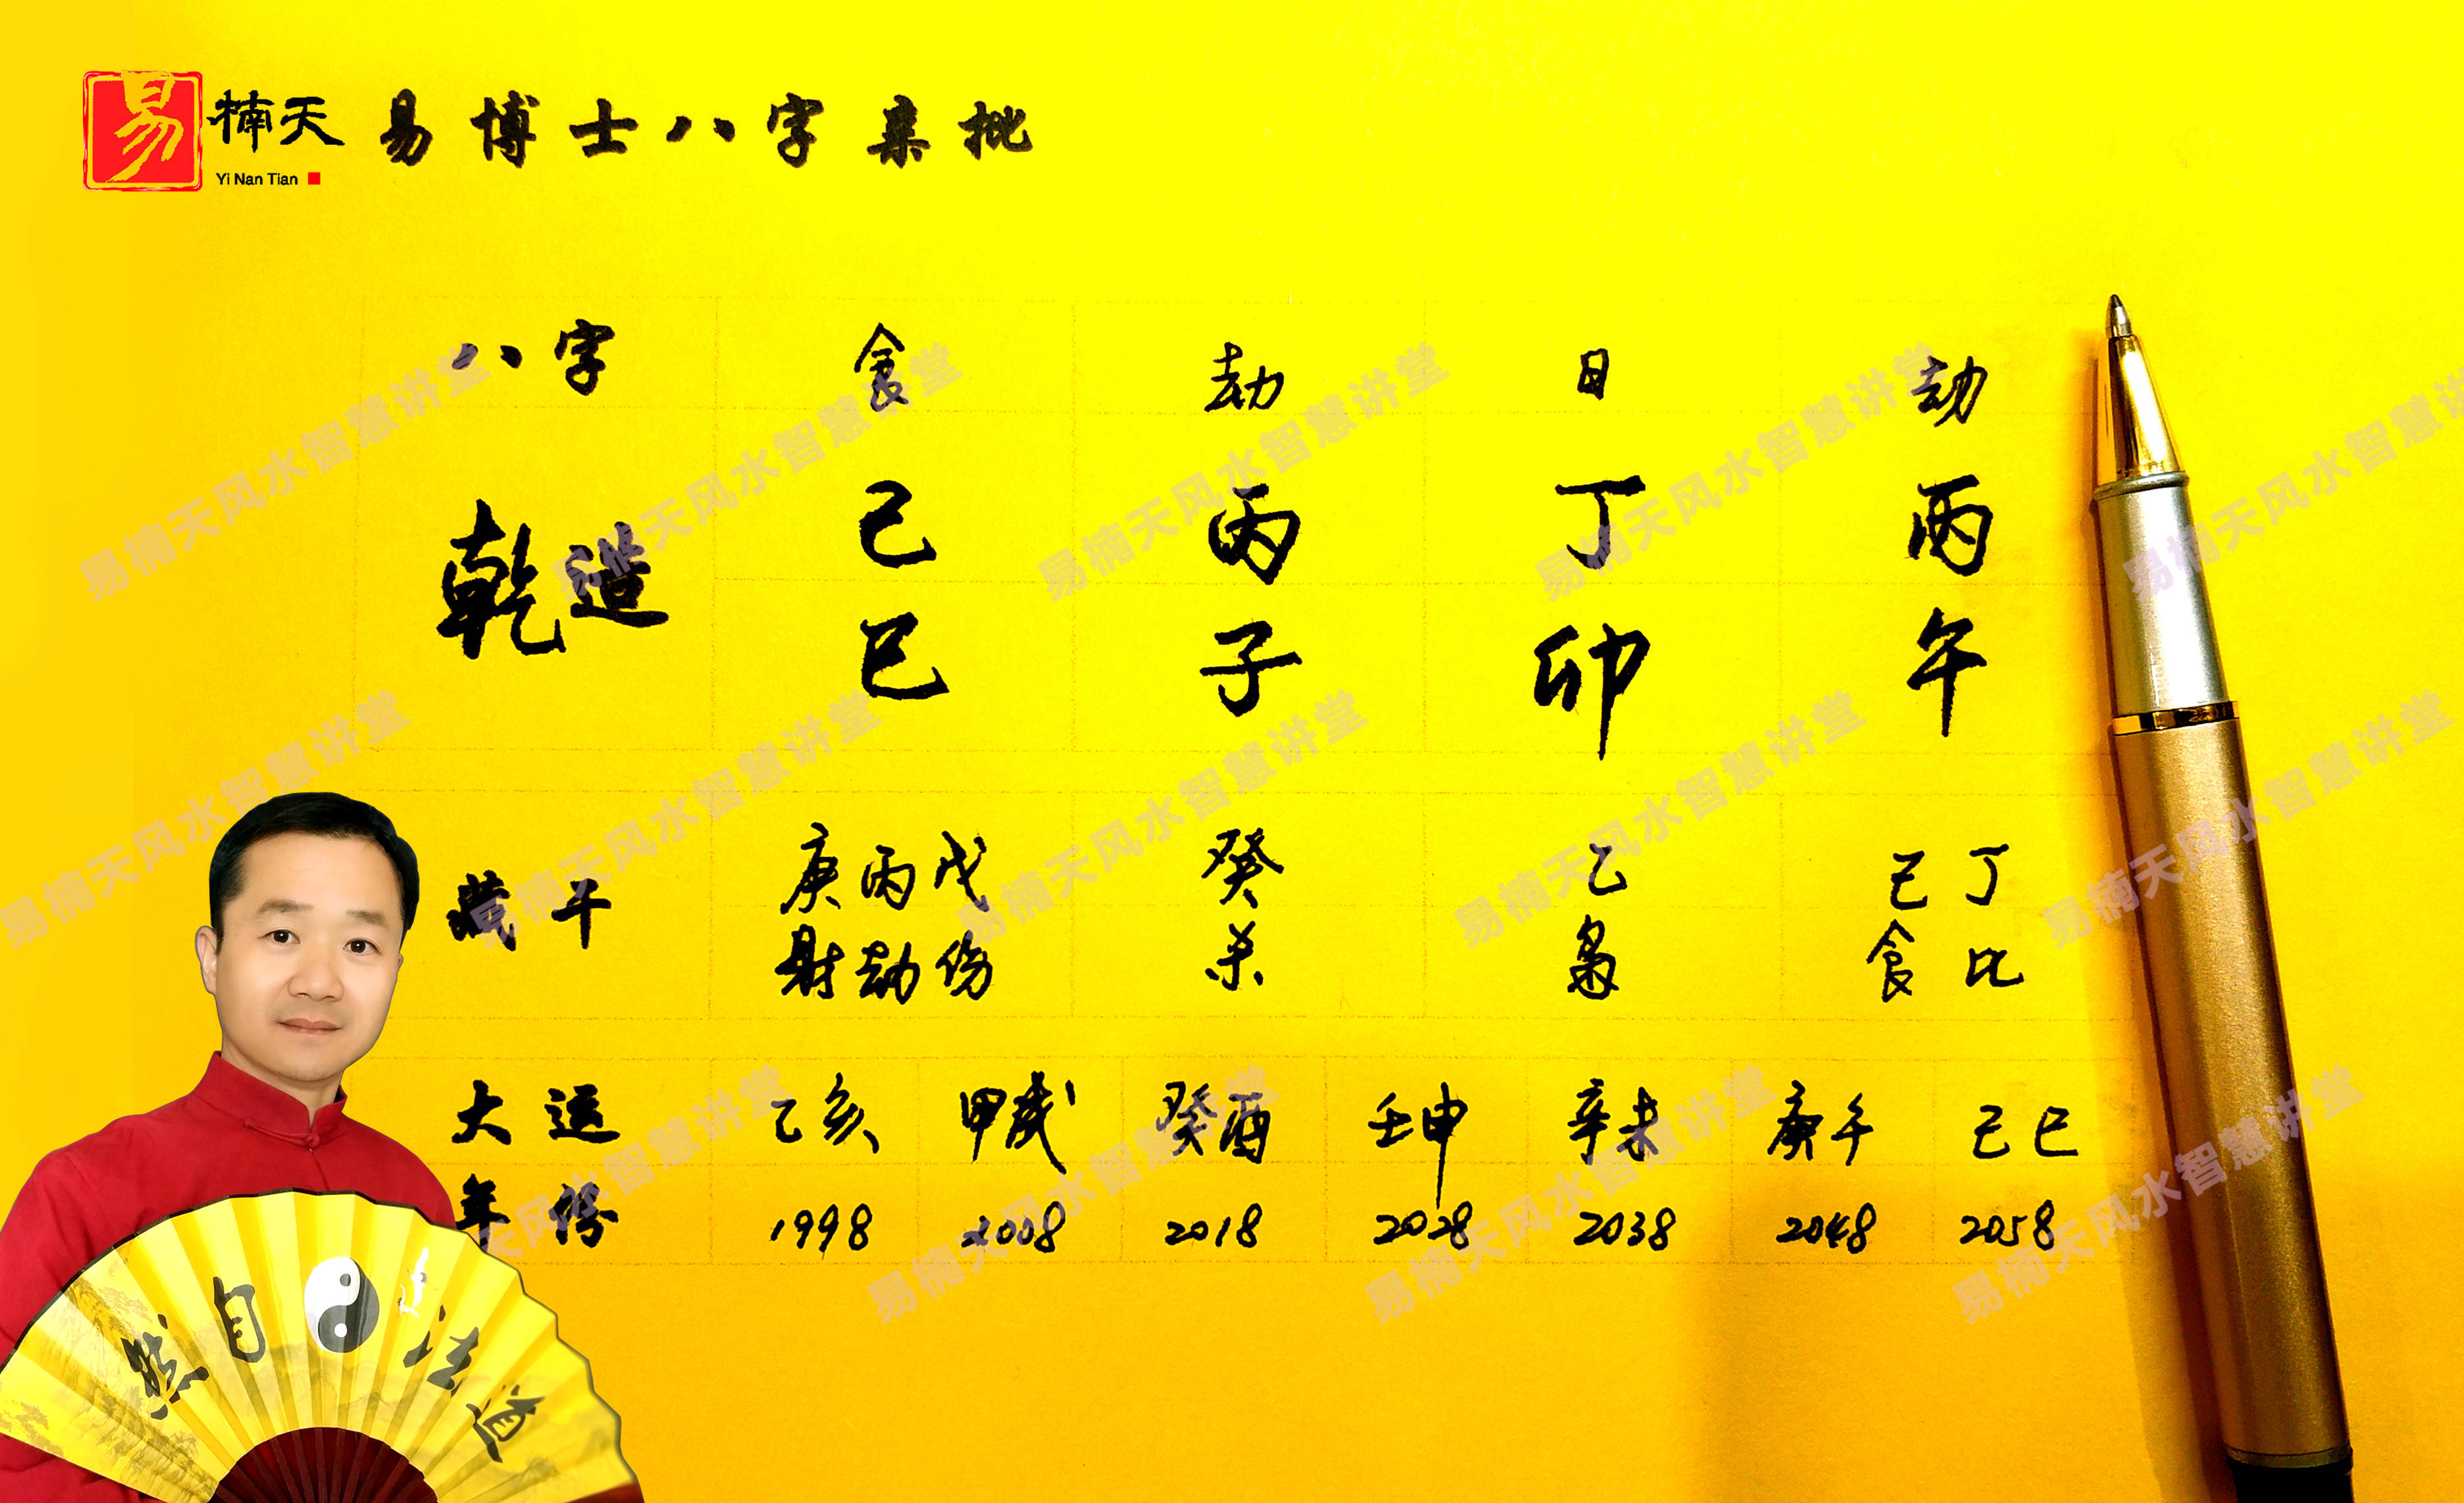 易 楠天 易博士八字案批
Yi Nan Tian
八字 食 劫 日 劫
乾造 己 丙 丁 丙
巳 子 卯 午
藏干 庚丙戊 癸 乙 己丁
财劫伤 杀 枭 食比
大运 乙亥 甲戌 癸酉 壬申 辛未 庚午 己巳
年份 1998 2008 2018 2028 2038 2048 2058
然自法道
易楠天风水智慧讲堂